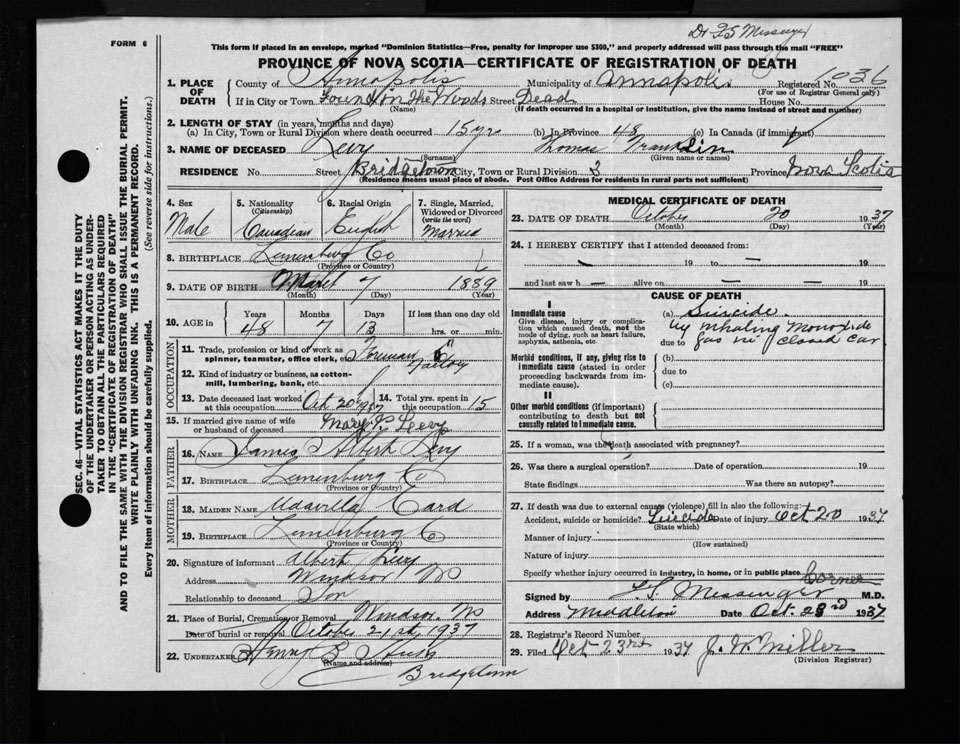 Dr F S Messenger
FORM 6
This form if placed in an envelope, marked "Dominion Statistics—Free, penalty for improper use $300," and properly addressed will pass through the mail "FREE"
PROVINCE OF NOVA SCOTIA—CERTIFICATE OF REGISTRATION OF DEATH
SEC. 46—VITAL STATISTICS ACT MAKES IT THE DUTY
OF THE UNDERTAKER OR PERSON ACTING AS UNDER-
TAKER TO OBTAIN ALL THE PARTICULARS REQUIRED
IN THE "CERTIFICATE OF REGISTRATION OF DEATH"
AND TO FILE THE SAME WITH THE DIVISION REGISTRAR WHO SHALL ISSUE THE BURIAL PERMIT.
WRITE PLAINLY WITH UNFADING INK. THIS IS A PERMANENT RECORD.
Every item of information should be carefully supplied. (See reverse side for instructions.)
1. PLACE OF DEATH County of Annapolis Municipality of Annapolis Registered No. 1036
(For use of Registrar General only)
If in City or Town Found in The Woods Street Dead House No.
(Name) (If death occurred in a hospital or institution, give the name instead of street and number)
2. LENGTH OF STAY (in years, months and days)
(a) In City, Town or Rural Division where death occurred 15 yr (b) In Province 48 (c) In Canada (if immigrant)
3. NAME OF DECEASED Levy Thomas Franklin
(Surname) (Given name or names)
RESIDENCE No. Street Bridgetown City, Town or Rural Division 3 Province Nova Scotia
(Residence means usual place of abode. Post Office Address for residents in rural parts not sufficient)
4. Sex Male
5. Nationality (Citizenship) Canadian
6. Racial Origin English
7. Single, Married, Widowed or Divorced (write the word) Married
8. BIRTHPLACE Lunenburg Co
(Province or Country)
9. DATE OF BIRTH March 7 1889
(Month) (Day) (Year)
10. AGE in Years Months Days If less than one day old
48 7 13 hrs. or min.
OCCUPATION
11. Trade, profession or kind of work as spinner, teamster, office clerk, etc. Foreman Factory
12. Kind of industry or business, as cotton-mill, lumbering, bank, etc.
13. Date deceased last worked at this occupation Oct 20 1937
14. Total yrs. spent in this occupation 15
15. If married give name of wife or husband of deceased Mary Levy
FATHER
16. NAME James Albert Levy
17. BIRTHPLACE Lunenburg Co
(Province or Country)
MOTHER
18. MAIDEN NAME Card
19. BIRTHPLACE Lunenburg Co
(Province or Country)
20. Signature of informant Albert Levy
Address Windsor NS
Relationship to deceased Son
21. Place of Burial, Cremation or Removal Windsor, NS
Date of burial or removal October 21st, 1937
22. UNDERTAKER Henry B
(Name and address)
Bridgetown
MEDICAL CERTIFICATE OF DEATH
23. DATE OF DEATH October 20 1937
(Month) (Day) (Year)
24. I HEREBY CERTIFY that I attended deceased from:
— 19 to — 19
and last saw h — alive on — — 19
CAUSE OF DEATH
I
Immediate cause
Give disease, injury or complication which caused death, not the mode of dying, such as heart failure, asphyxia, asthenia, etc.
(a) Suicide
by inhaling Monoxide
due to gas in closed car
Morbid conditions, if any, giving rise to immediate cause (stated in order proceeding backwards from immediate cause).
(b)
due to
(c)
II
Other morbid conditions (if important) contributing to death but not causally related to immediate cause.
25. If a woman, was the death associated with pregnancy?
26. Was there a surgical operation? Date of operation 19
State findings Was there an autopsy?
27. If death was due to external causes (violence) fill in also the following:
Accident, suicide or homicide? Suicide Date of injury Oct 20 1937
(State which)
Manner of injury
(How sustained)
Nature of injury
Specify whether injury occurred in industry, in home, or in public place
Corner
Signed by F. S. Messenger M.D.
Address Middleton Date Oct. 23rd 1937
28. Registrar's Record Number
29. Filed Oct 23rd 1937 J. W. Miller
(Division Registrar)